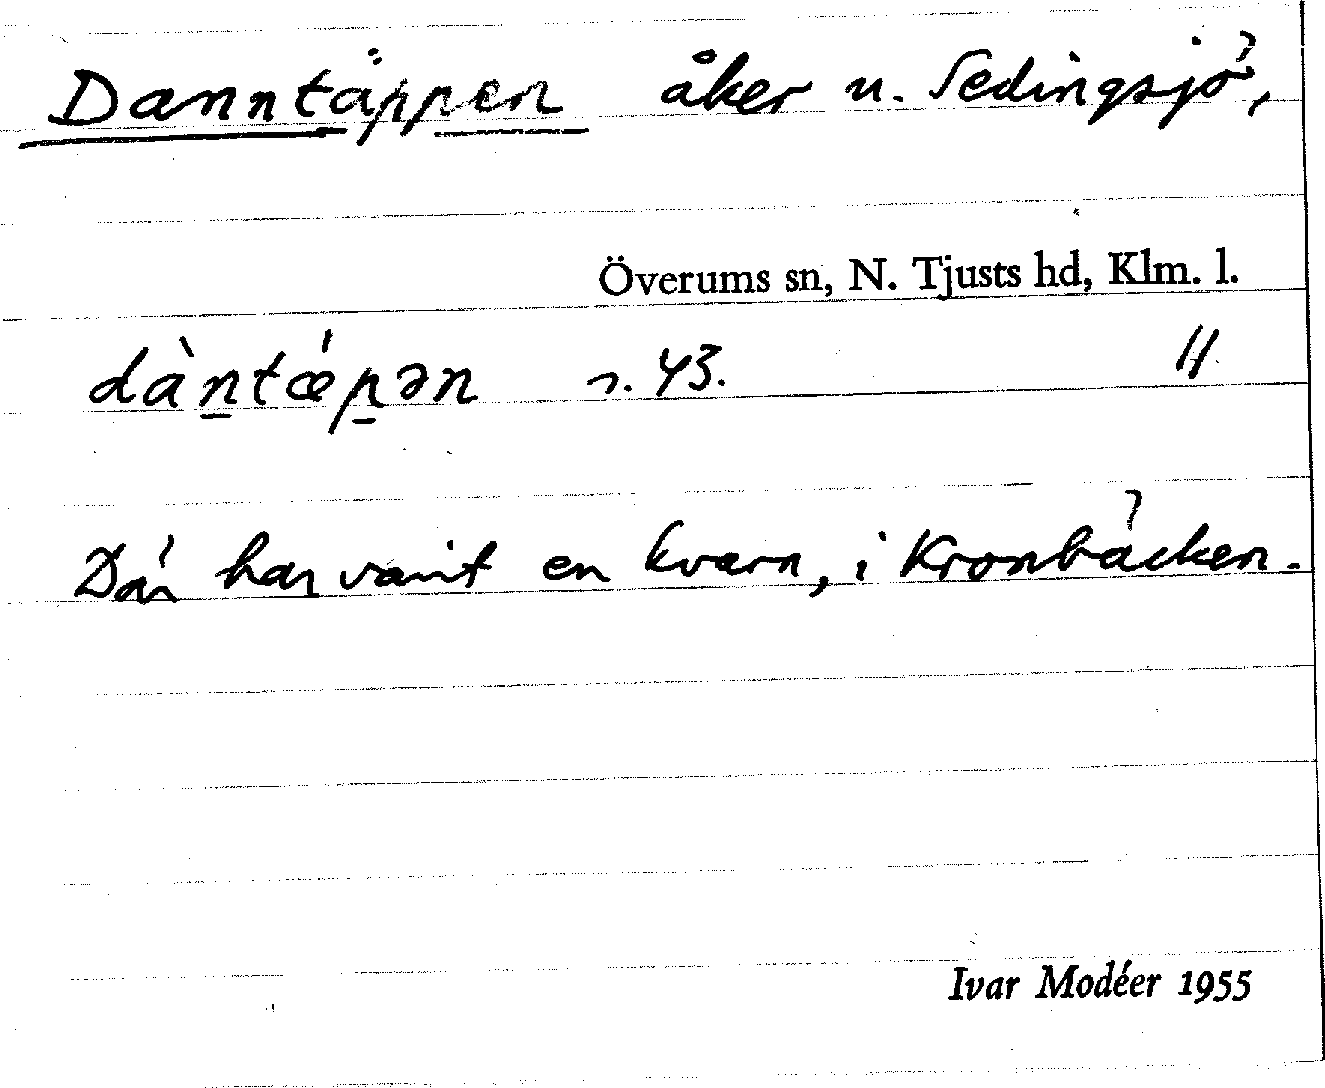 Danntäppen åker u. Sedingsjö,
Överums sn, N. Tjusts hd, Klm. l.
dàn̲tǽp̲ən s. 43. H
Där har varit en kvarn, i Kronbäcken.
Ivar Modéer 1955